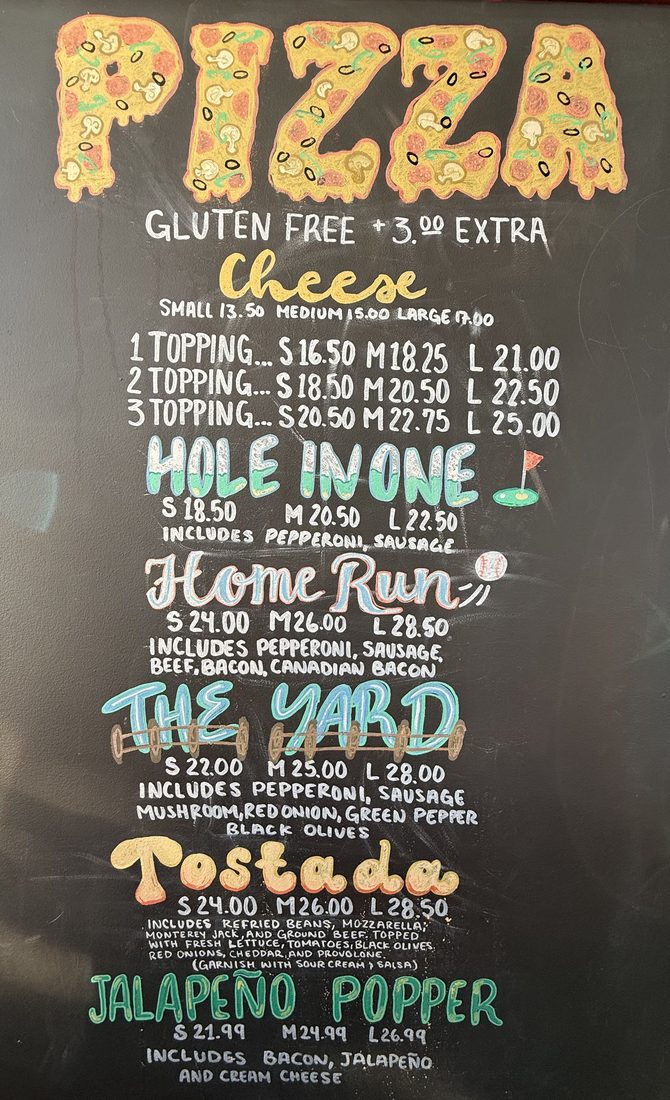 PIZZA
GLUTEN FREE + 3.00 EXTRA
Cheese
SMALL 13.50 MEDIUM 15.00 LARGE 17.00
1 TOPPING... S 16.50 M 18.25 L 21.00
2 TOPPING... S 18.50 M 20.50 L 22.50
3 TOPPING... S 20.50 M 22.75 L 25.00
HOLE IN ONE
S 18.50 M 20.50 L 22.50
INCLUDES PEPPERONI, SAUSAGE
Home Run
S 24.00 M 26.00 L 28.50
INCLUDES PEPPERONI, SAUSAGE,
BEEF, BACON, CANADIAN BACON
THE YARD
S 22.00 M 25.00 L 28.00
INCLUDES PEPPERONI, SAUSAGE
MUSHROOM, RED ONION, GREEN PEPPER
BLACK OLIVES
Tostada
S 24.00 M 26.00 L 28.50
INCLUDES REFRIED BEANS, MOZZARELLA,
MONTEREY JACK, AND GROUND BEEF. TOPPED
WITH FRESH LETTUCE, TOMATOES, BLACK OLIVES,
RED ONIONS, CHEDDAR, AND PROVOLONE.
(GARNISH WITH SOUR CREAM & SALSA)
JALAPEÑO POPPER
S 21.99 M 24.99 L 26.99
INCLUDES BACON, JALAPEÑO
AND CREAM CHEESE